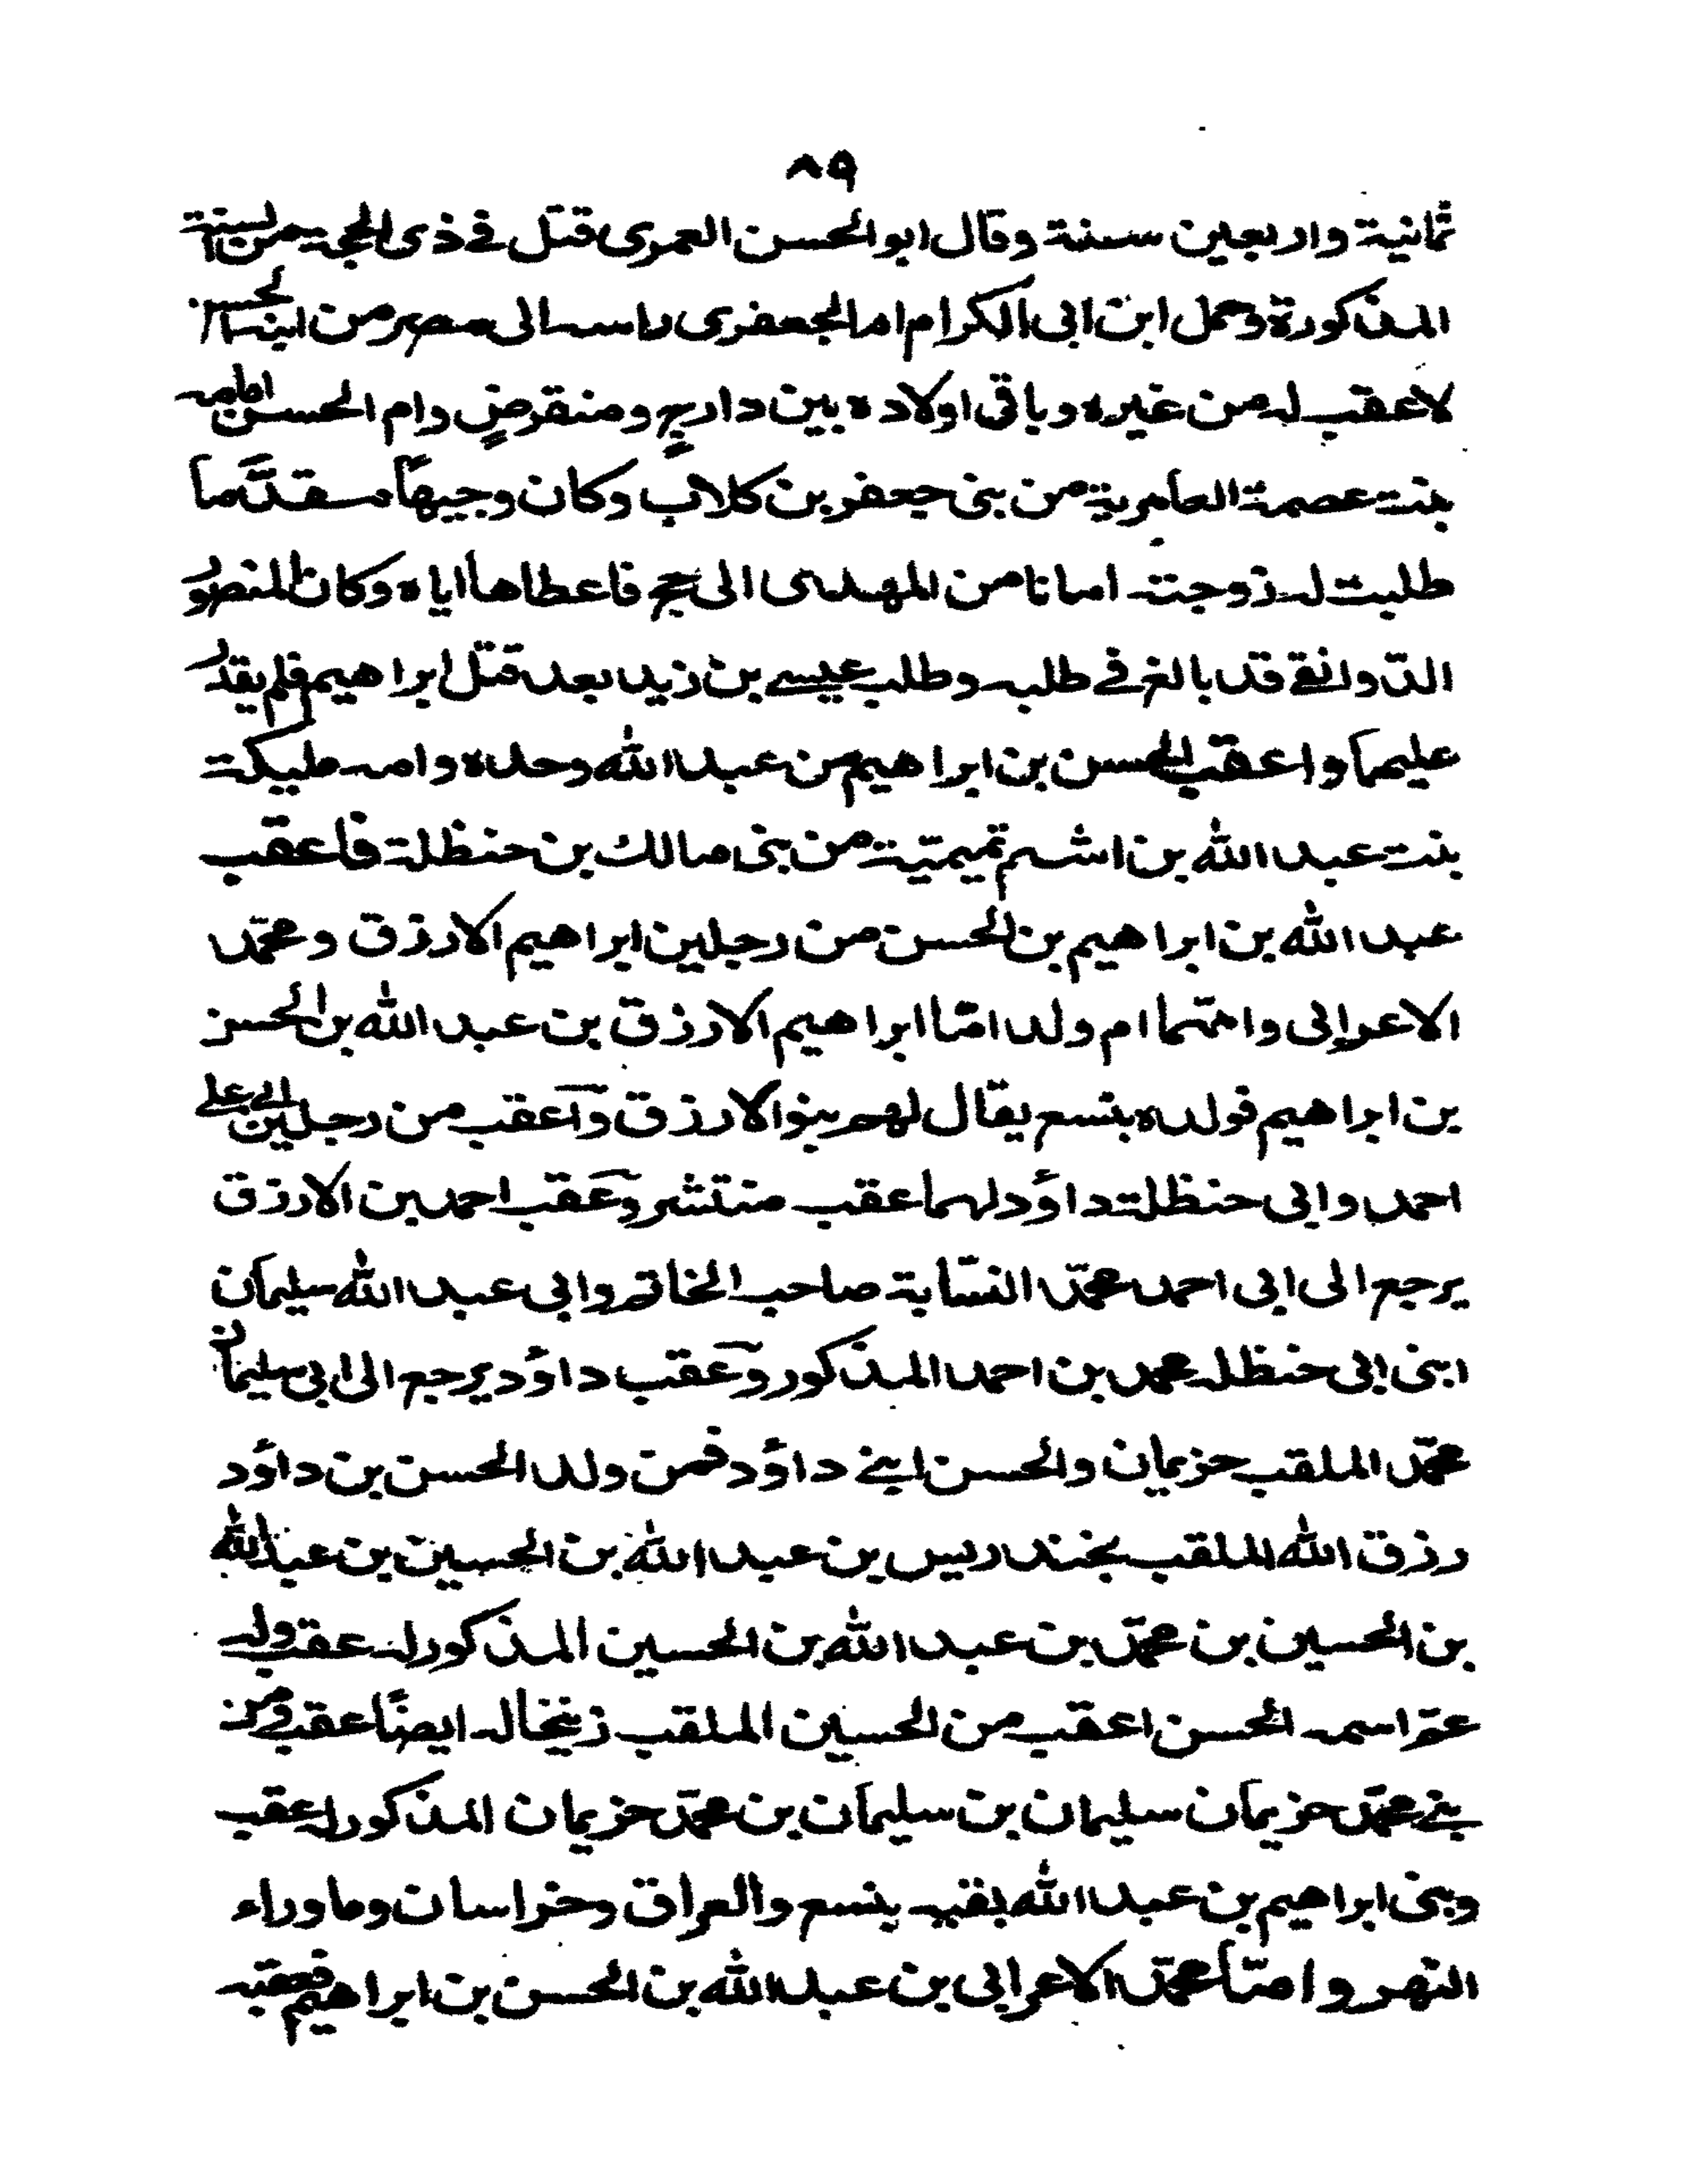 ٨٩
ثمانية واربعين سنة وقال ابو الحسن العمرى قتل فے ذى الحجة من السنة
المذكورة وحمل ابن ابى الكرام اما الجعفرى راسه الى مصر من ابنه الحسن
لا عقب له من غيره وباقى اولاده بين دارجٍ ومنقرضٍ وام الحسن امامه
بنت عصمة العامرية من بنى جعفر بن كلاب وكان وجيهاً مقدَّما
طلبت له زوجته امانا من المهدى الى حج فاعطاها اياه وكان المنصور
الدوانقے قد بالغ فے طلبه وطلب عيسے بن زيد بعد قتل ابراهيم فلم يقدر
عليهما واعقب الحسن بن ابراهيم من عبد الله وحده وامه مليكة
بنت عبد الله بن اشيم تميمية من بنى مالك بن حنظلة فاعقب
عبد الله بن ابراهيم بن الحسن من رجلين ابراهيم الازرق ومحمّد
الاعرابى وامّهما ام ولد امّا ابراهيم الازرق بن عبد الله بن الحسن
بن ابراهيم فولده بنسع يقال لهم بنو الازرق واعقب من رجلين ابى على
احمد وابى حنظلة داؤد لهما عقب منتشر وعقب احمد بن الازرق
يرجع الى ابى احمد محمّد النسّابة صاحب الخاتم وابى عبد الله سليمان
ابنى ابى حنظله محمد بن احمد المذكور وعقب داؤد يرجع الى ابى سليمان
محمّد الملقب حزيمان والحسن ابنے داؤد فمن ولد الحسن بن داؤد
رزق الله الملقب بخندريس بن عبد الله بن الحسين بن عبد الله
بن الحسين بن محمّد بن عبد الله بن الحسين المذكور له عقب وله
عمّ اسمه الحسن اعقب من الحسين الملقب زنيخا له ايضًا عقب ومن
بنے محمّد حزيمان سليمان بن سليمان بن محمّد حزيمان المذكور له عقب
وبنى ابراهيم بن عبد الله بقيه بنسع والعراق وخراسان وما وراء
النهر وامّا محمّد الاعرابى بن عبد الله بن الحسن بن ابراهيم فعقبه